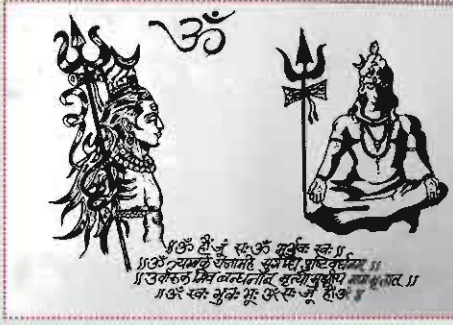 ॐ
॥ ॐ हौं जूं सः ॐ भूर्भुवः स्वः ॥
॥ ॐ त्र्यम्बकं यजामहे सुगन्धिं पुष्टिवर्धनम् ॥
॥ उर्वारुकमिव बन्धनान् मृत्योर्मुक्षीय मामृतात् ॥
॥ ॐ स्वः भुवः भूः ॐ सः जूं हौं ॐ ॥